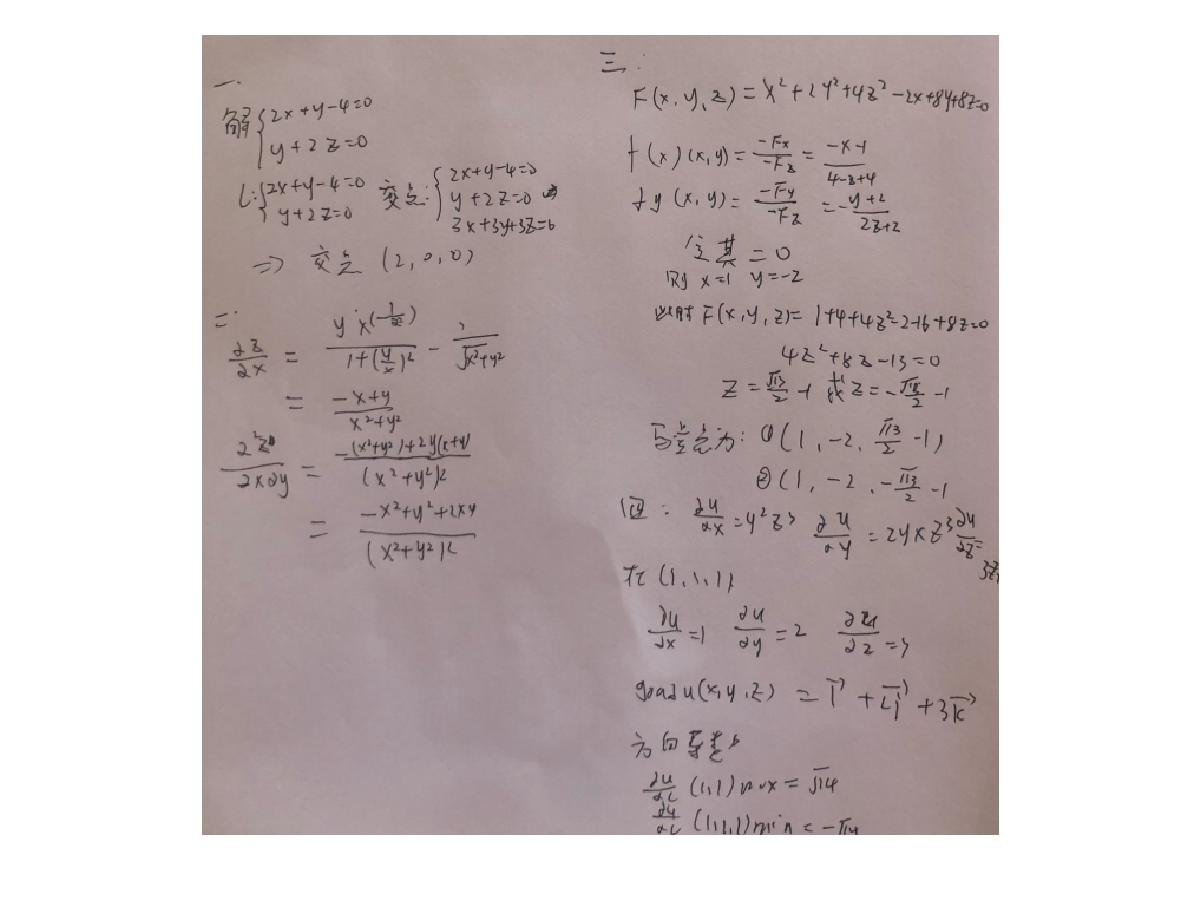 一.
解 { 2x+y-4=0
y+2z=0
L: { 2x+y-4=0 交点: { 2x+y-4=0
y+2z=0 y+2z=0 ⇒
3x+3y+3z=6
⇒ 交点 (2,0,0)
二.
∂z/∂x =
= (-x+y)/(x²+y²)
∂²z/∂x∂y = (-(x²+y²)+2y(x+y))/(x²+y²)²
= (-x²+y²+2xy)/(x²+y²)²
三.
F(x,y,z)=x²+2y²+4z²-2x+8y+8z=0
f(x)(x,y)= -Fx/-Fz = (-x-1)/(4-z+4)
fy(x,y)= -Fy/-Fz = -(y+2)/(2z+2)
令其=0
则 x=1 y=-2
此时 F(x,y,z)=1+4+4z²-2-16+8z=0
4z²+8z-13=0
z=√13/2-1 或 z=-√13/2-1
点为: ①(1,-2,√13/2-1)
②(1,-2,-√13/2-1
四: ∂u/∂x=y²z³ ∂u/∂y=2yxz³ ∂u/∂z=
在(1,1,1)
∂u/∂x=1 ∂u/∂y=2 ∂u/∂z=3
grad u(x,y,z) = i⃗+2j⃗+3k⃗
方向导数
∂u/∂l (1,1)max=√14
∂u/∂l (1,1,1)min=-√14